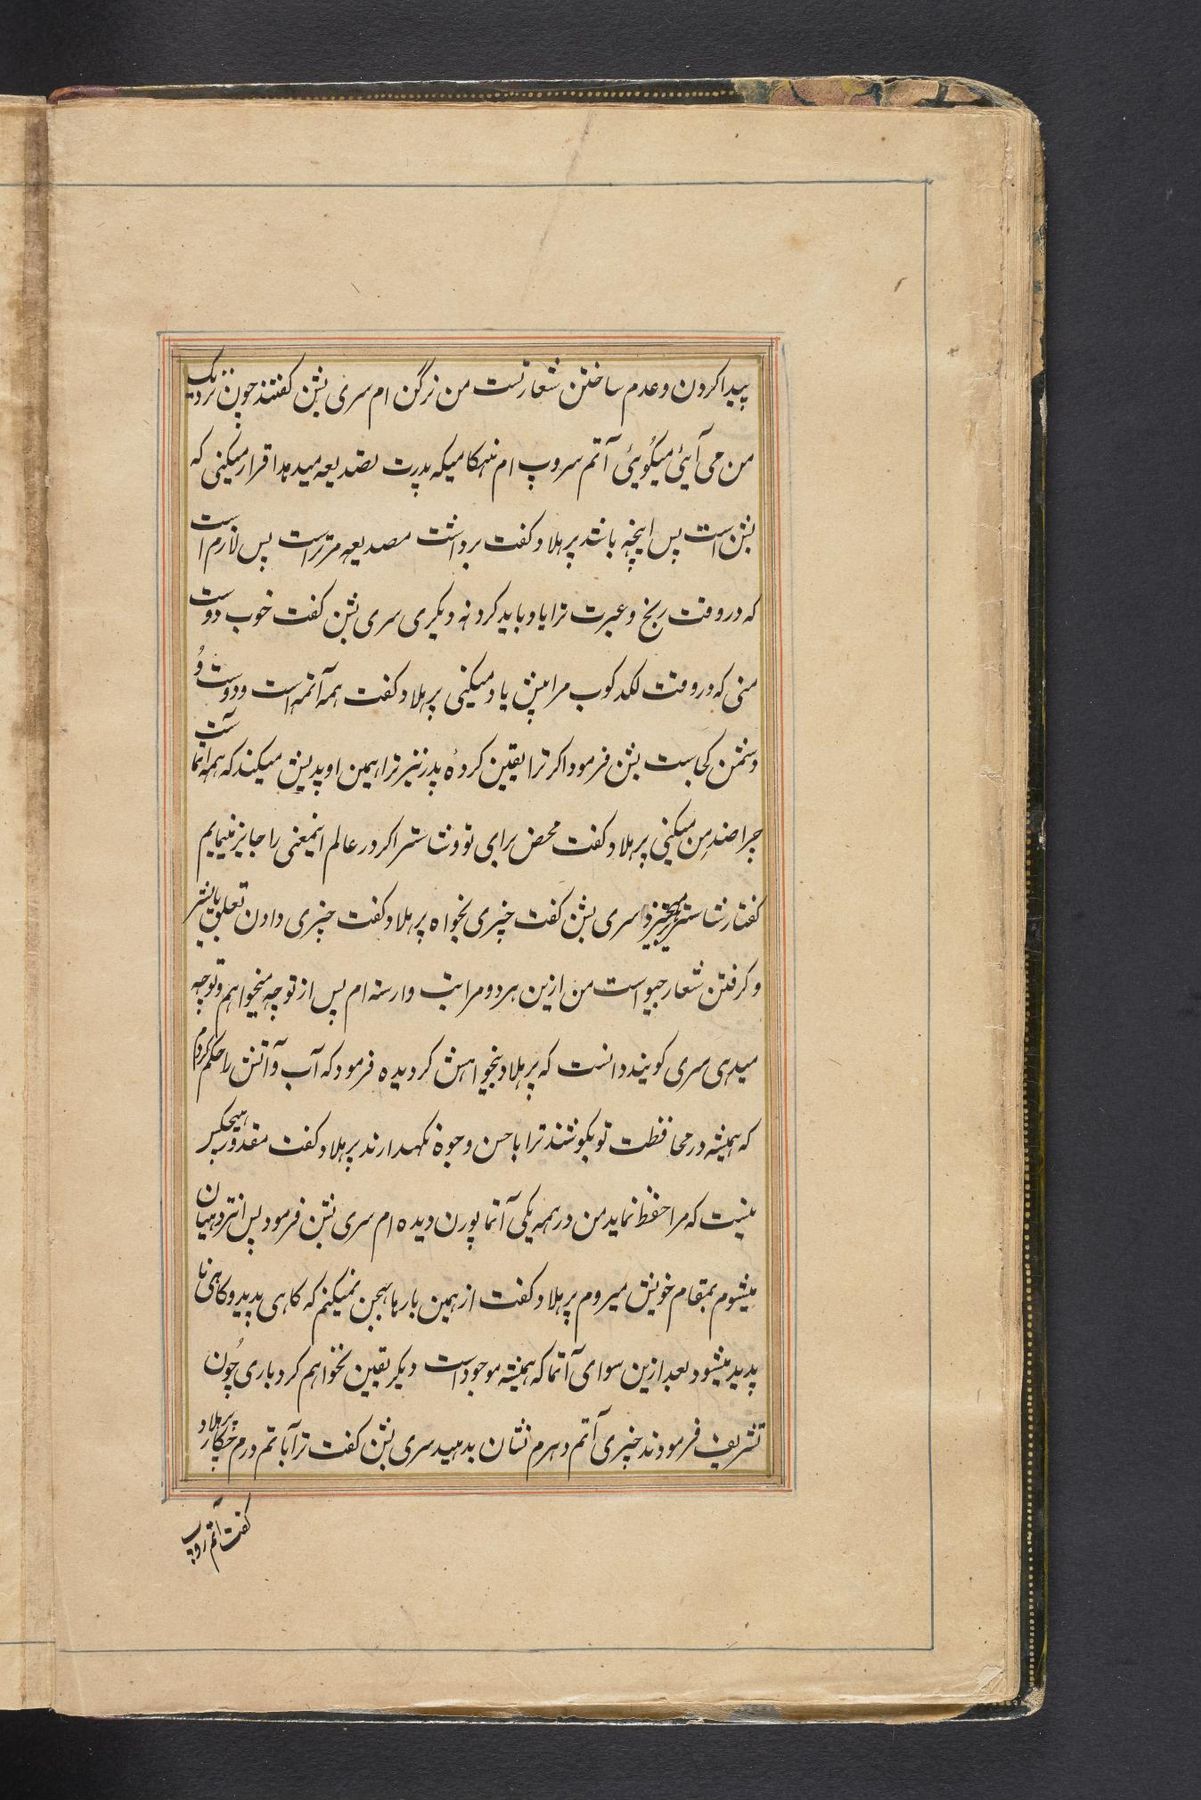 پیدا کردن و عدم ساختن شعار تست من نرگن ام سری بشن گفتند چون نزدیک
من می آیئی میگوئی آتم سروپ ام هنگامیکه پدرت تصدیعه میدهد اقرار میکنی که
بشن است پس اینچه باشد پرهلاد گفت برداشت تصدیعه مرتراست پس لازم است
که در وقت رنج و عبرت ترا یاد باید کرد نه دیگری سری بشن گفت خوب دوست
منی که در وقت لکد کوب مرا پیش یاد میکنی پرهلاد گفت همه آتمه است و دوست و
دشمن کجاست بشن فرمود اکر ترا یقین کردهٔ پدر نیز ترا همین او پدیش میکند که همه آتما است
چرا ضد من میکنی پرهلاد گفت محض برای تو و شاستر اکر در عالم اینمعنی را جایز نمایم
گفتار شاستر سری بشن گفت چیزی بخواه پرهلاد گفت چیزی دادن تعلق بایشر
و گرفتن شعار جیو است من ازین هر دو مراتب وارسته ام پس از تو چه میخواهم و تو چه
میدهی سری گویند دانست که پرهلاد بیخواهش گردیده فرمود که آب و آتش را حکم کردم
که همیشه در محافظت تو بکوشند ترا باحسن وجوه نگهدارند پرهلاد گفت مقدور هیچکس
نیست که مرا حفظ نماید من در همه یکی آتما پورن دیده ام سری بشن فرمود پس انتردهیان
میشوم بمقام خویش میروم پرهلاد گفت از همین بار ما بهجن نمیکنم که کاهی پدید و کاهی نا
پدید میشود بعد ازین سوای آتما که همیشه موجود است دیگر یقین نخواهم کرد باری چون
تشریف فرمودند چیزی آتم دهرم نشان بدهید سری بشن گفت ترا با تم درم چکار پرهلاد
گفت آتم روپ